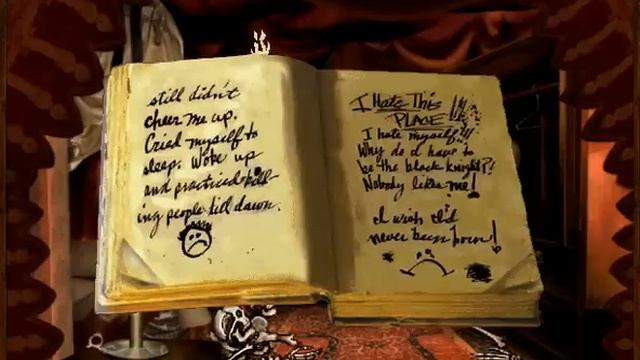 still didn't
cheer me up.
Cried myself to
sleep. Woke up
and practiced kill-
ing people till dawn.
I Hate This
PLACE!!!
I hate myself!!!
Why do I have to
be the black knight?!
Nobody likes me!
I wish I'd
never been born!